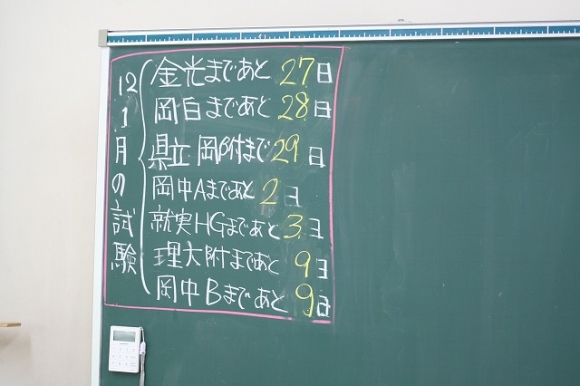 12
1月の試験
金光まであと27日
岡白まであと28日
県立岡附まで29日
岡中Aまであと2日
就実HGまであと3日
理大附まであと9日
岡中Bまであと9日